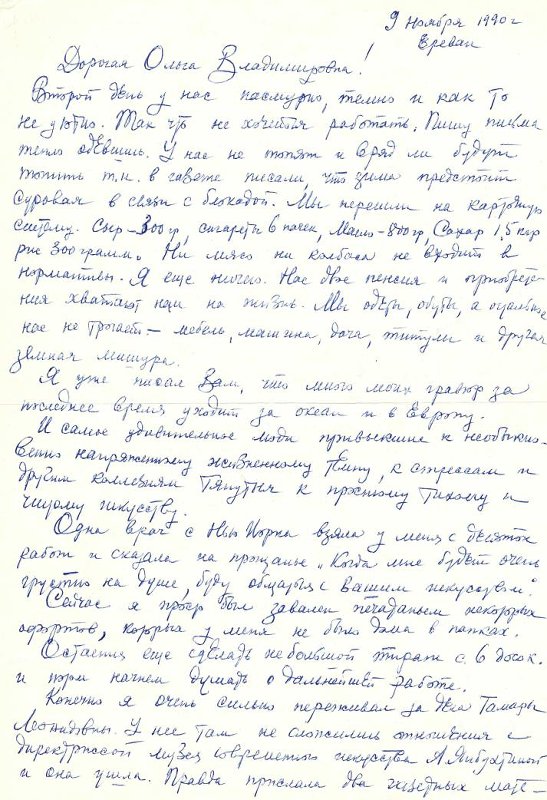 9 ноября 1990 г
Ереван
Дорогая Ольга Владимировна!
Второй день у нас пасмурно, темно и как то
не уютно. Так что не хочется работать. Пишу письма
тепло одевшись. У нас не топят и вряд ли будут
топить т.н. в газете писали, что зима предстоит
суровая в связи с блокадой. Мы перешли на карточную
систему. Сыр - 300 гр, сигареты 6 пачек, Масло - 800 гр, Сахар 1,5 кгр
рис 300 грамм. Ни мясо ни колбаса не входит в
нормативы. Я еще ничего. Нас двое пенсия и приобрете-
ния хватают нам на жизнь. Мы одеты, обуты, а остальное
нас не трогает - мебель, машина, дача, титулы и другая
земная мишура.
Я уже писал Вам, что много моих гравюр за
последнее время уходит за океан и в Европу.
И самое удивительное люди привыкшие к необыкно-
венно напряженному жизненному темпу, к стрессам и
другим коллизиям тянутся к простому тихому и
чистому искусству.
Одна врач с Нью Йорка взяла у меня с десяток
работ и сказала на прощанье „Когда мне будет очень
грустно на душе, буду общаться с вашим искусством".
Сейчас я просто был завален печатаньем некоторых
офортов, которых у меня не было дома в папках.
Остается еще сделать небольшой тираж с 6 досок.
и потом начнем думать о дальнейшей работе.
Конечно я очень сильно переживал за дела Тамары
Леонидовны. У нее там не сложились отношения с
директрисой музея современного искусства
и она ушла. Правда прислала два газетных мате-